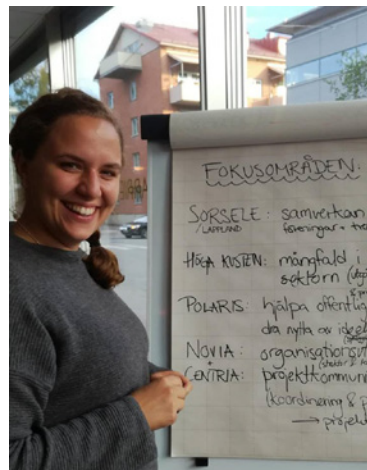 FOKUSOMRÅDEN:
SORSELE: samverkan
/LAPPLAND föreningar +
HÖGA KUSTEN: mångfald i
sektorn
POLARIS: hjälpa offentlig
dra nytta av
NOVIA:
CENTRIA: projektkommuni
(koordinering & p
→ projekt